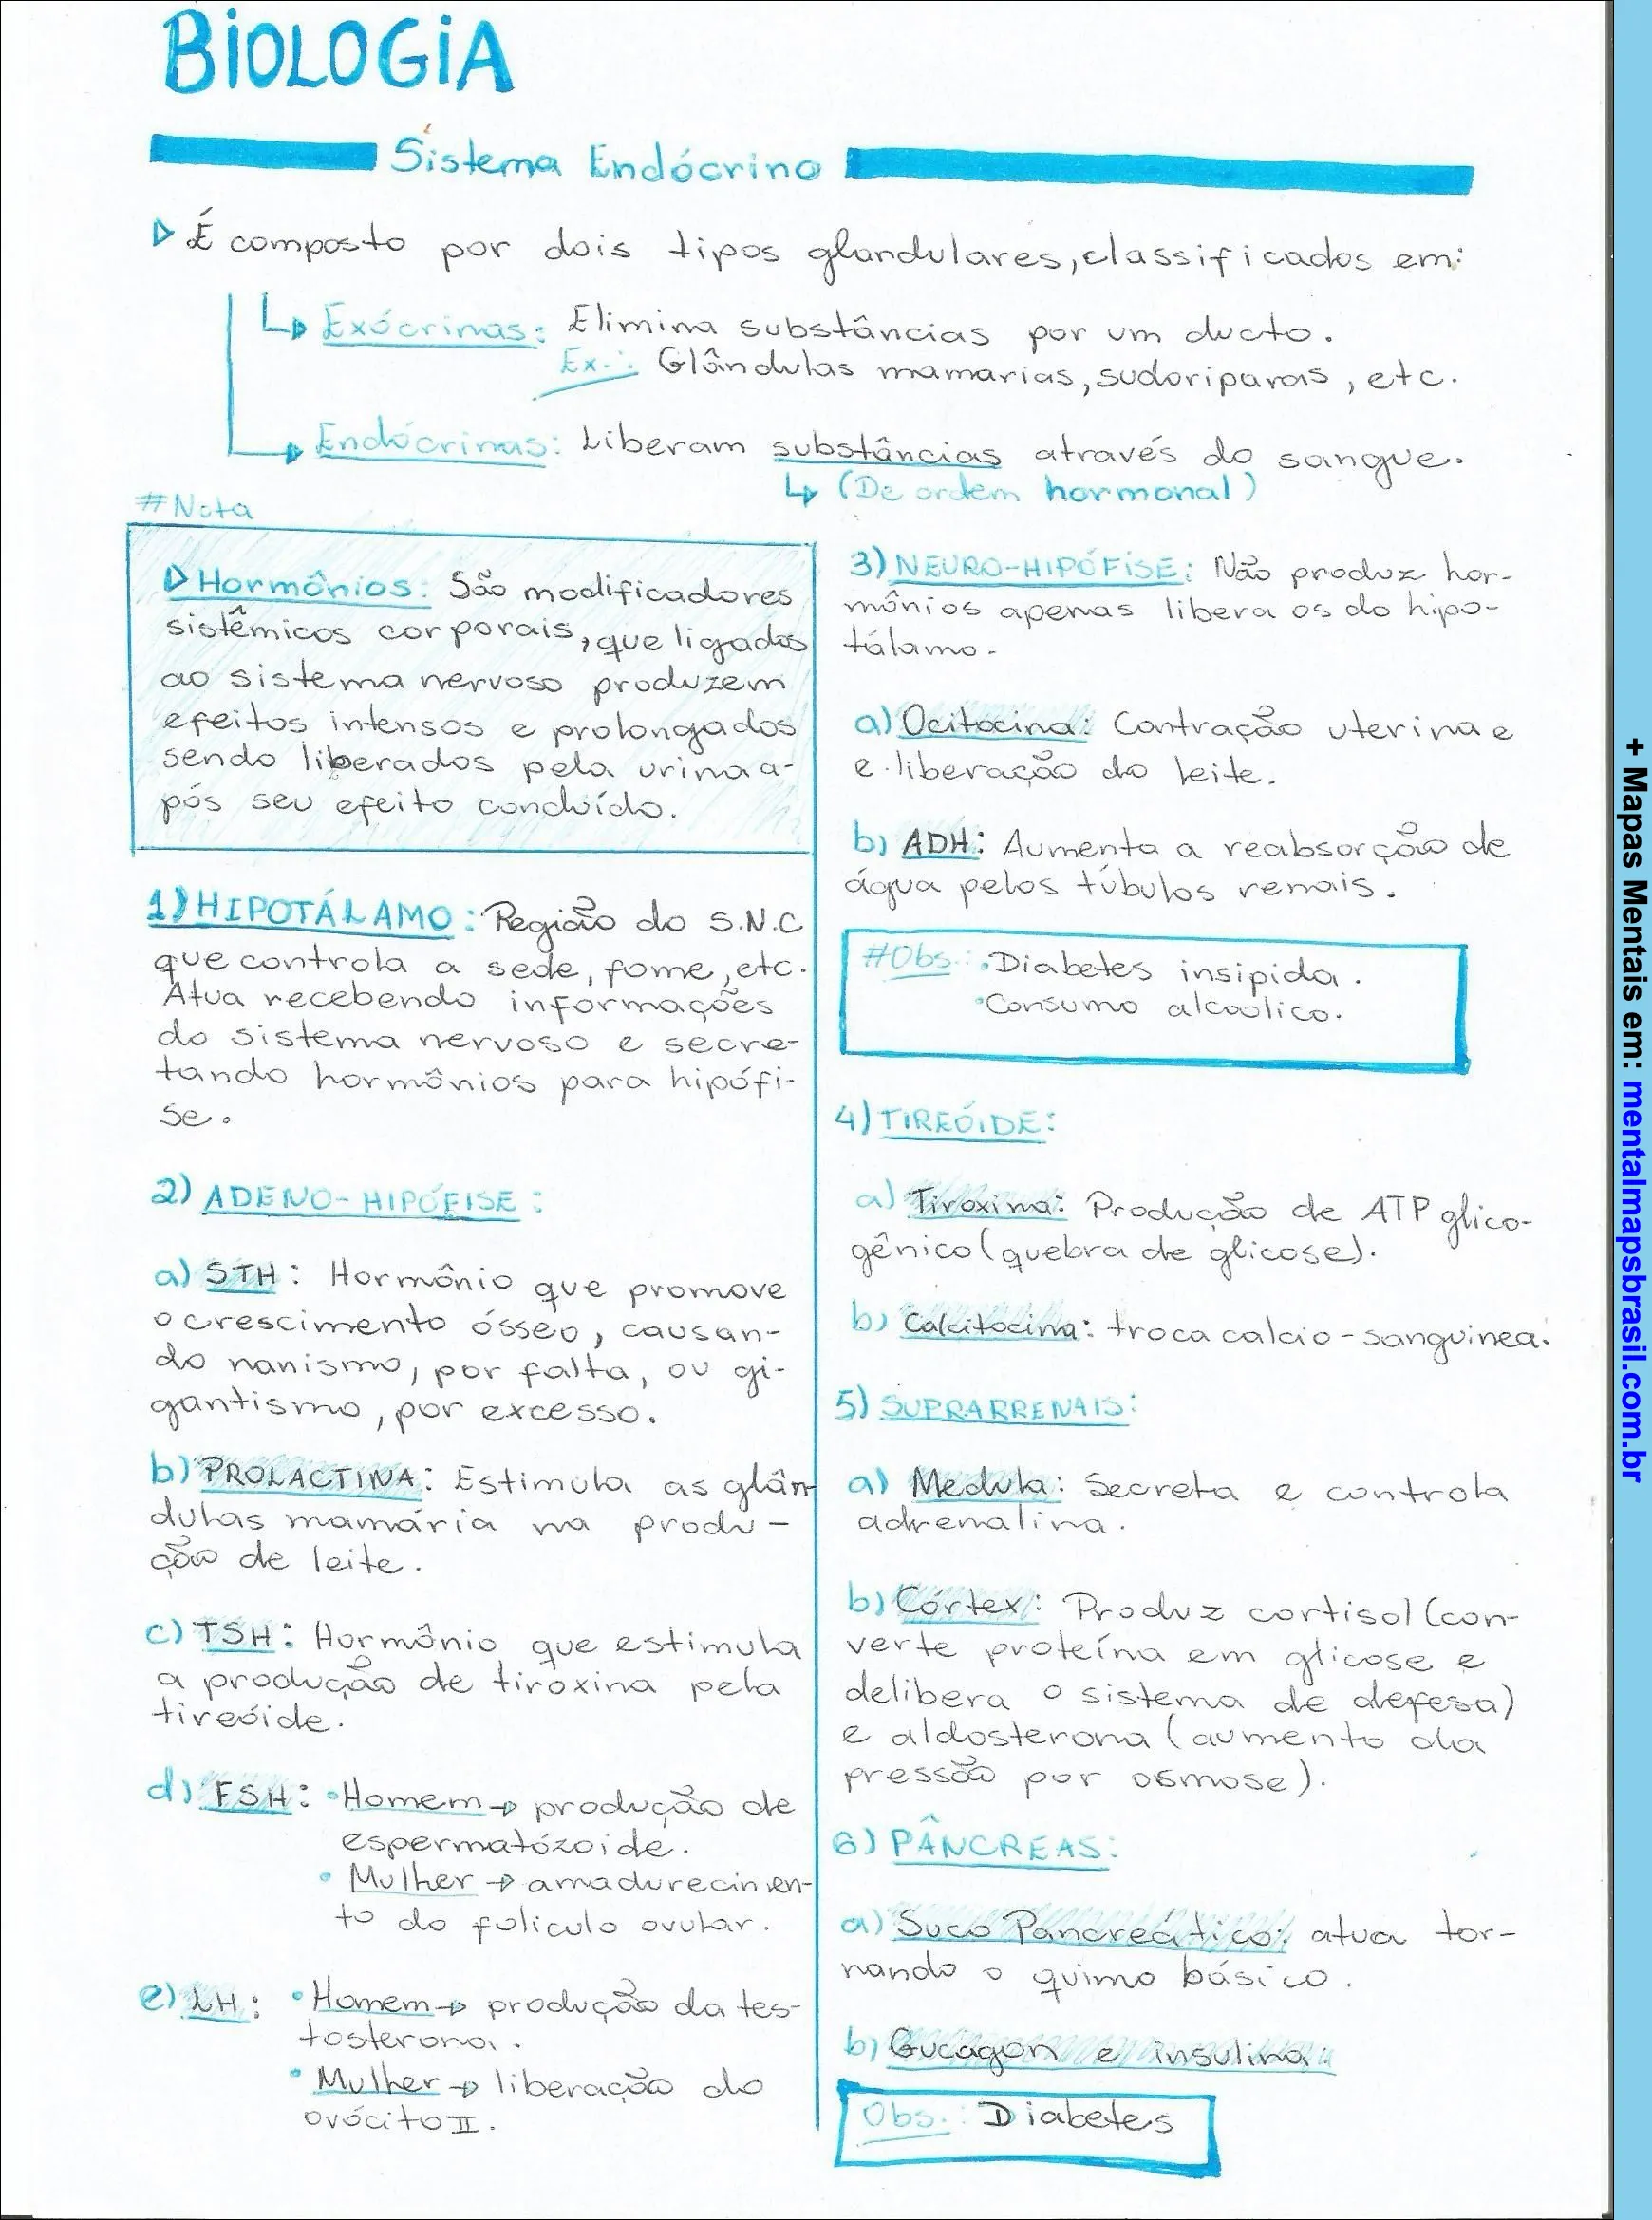 BIOLOGIA
Sistema Endócrino
É composto por dois tipos glandulares, classificados em:
Exócrinas: Elimina substâncias por um ducto.
Ex.: Glândulas mamarias, sudoriparas, etc.
Endócrinas: Liberam substâncias através do sangue.
(De ordem hormonal)
#Nota
Hormônios: São modificadores
sistêmicos corporais, que ligados
ao sistema nervoso produzem
efeitos intensos e prolongados
sendo liberados pela urina a-
pós seu efeito concluído.
1) HIPOTÁLAMO: Região do S.N.C
que controla a sede, fome, etc.
Atua recebendo informações
do sistema nervoso e secre-
tando hormônios para hipófi-
se.
2) ADENO-HIPÓFISE:
a) STH: Hormônio que promove
o crescimento ósseo, causan-
do nanismo, por falta, ou gi-
gantismo, por excesso.
b) PROLACTINA: Estimula as glân-
dulas mamária na produ-
ção de leite.
c) TSH: Hormônio que estimula
a produção de tiroxina pela
tireóide.
d) FSH: • Homem → produção de
espermatózoide.
• Mulher → amadurecimen-
to do foliculo ovular.
e) LH: • Homem → produção da tes-
tosterona.
• Mulher → liberação do
ovócito II.
3) NEURO-HIPÓFISE: Não produz hor-
mônios apenas libera os do hipo-
tálamo.
a) Ocitocina: Contração uterina e
e liberação do leite.
b) ADH: Aumenta a reabsorção de
água pelos túbulos renais.
#Obs.: • Diabetes insipida.
• Consumo alcoólico.
4) TIREÓIDE:
a) Tiroxina: Produção de ATP glico-
gênico (quebra de glicose).
b) Calcitocina: troca calcio-sanguinea.
5) SUPRARRENAIS:
a) Medula: Secreta e controla
adrenalina.
b) Córtex: Produz cortisol (con-
verte proteína em glicose e
delibera o sistema de defesa)
e aldosterona (aumento da
pressão por osmose).
6) PÂNCREAS:
a) Suco Pancreático: atua tor-
nando o quimo básico.
b) Gucagon e insulina.
Obs.: Diabetes
+ Mapas Mentais em: mentalmapsbrasil.com.br